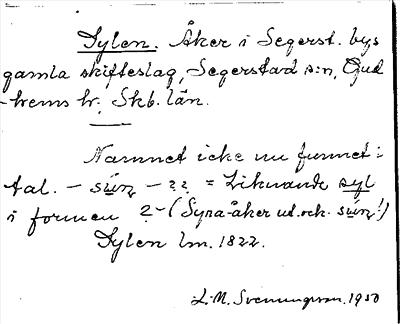 Sylen. Åker i Segerst. bys
gamla skifteslag, Segerstad s:n, Gud
-hems hr. Skb. län.
Namnet icke nu funnet i
tal. – sún – ?? = Liknande syl
i formen ? – (Syra-åker ut. och. sún!)
Sylen lm. 1822.
L. M. Svenungsson. 1930